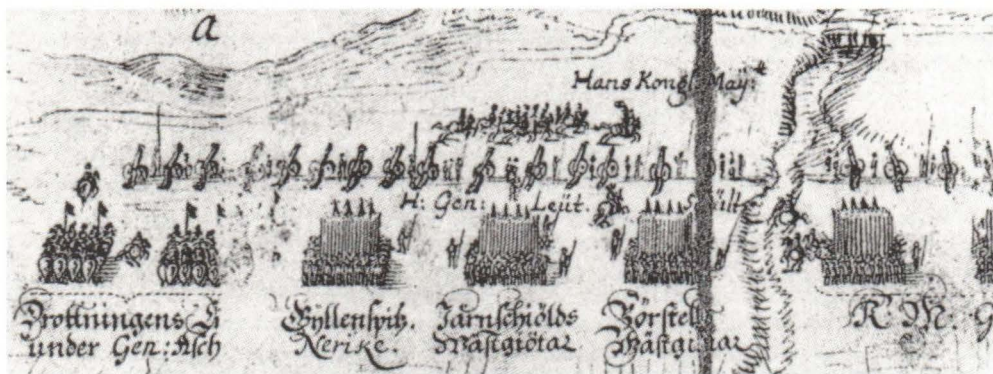 a
Hans Kongl. May:
H: Gen: Lejit.
Drottningens
under Gen: Asch
Gyllenspitz.
Nerike.
Järnschiölds
Wästgiötar
Börstell
Wästgiötar
R. M.